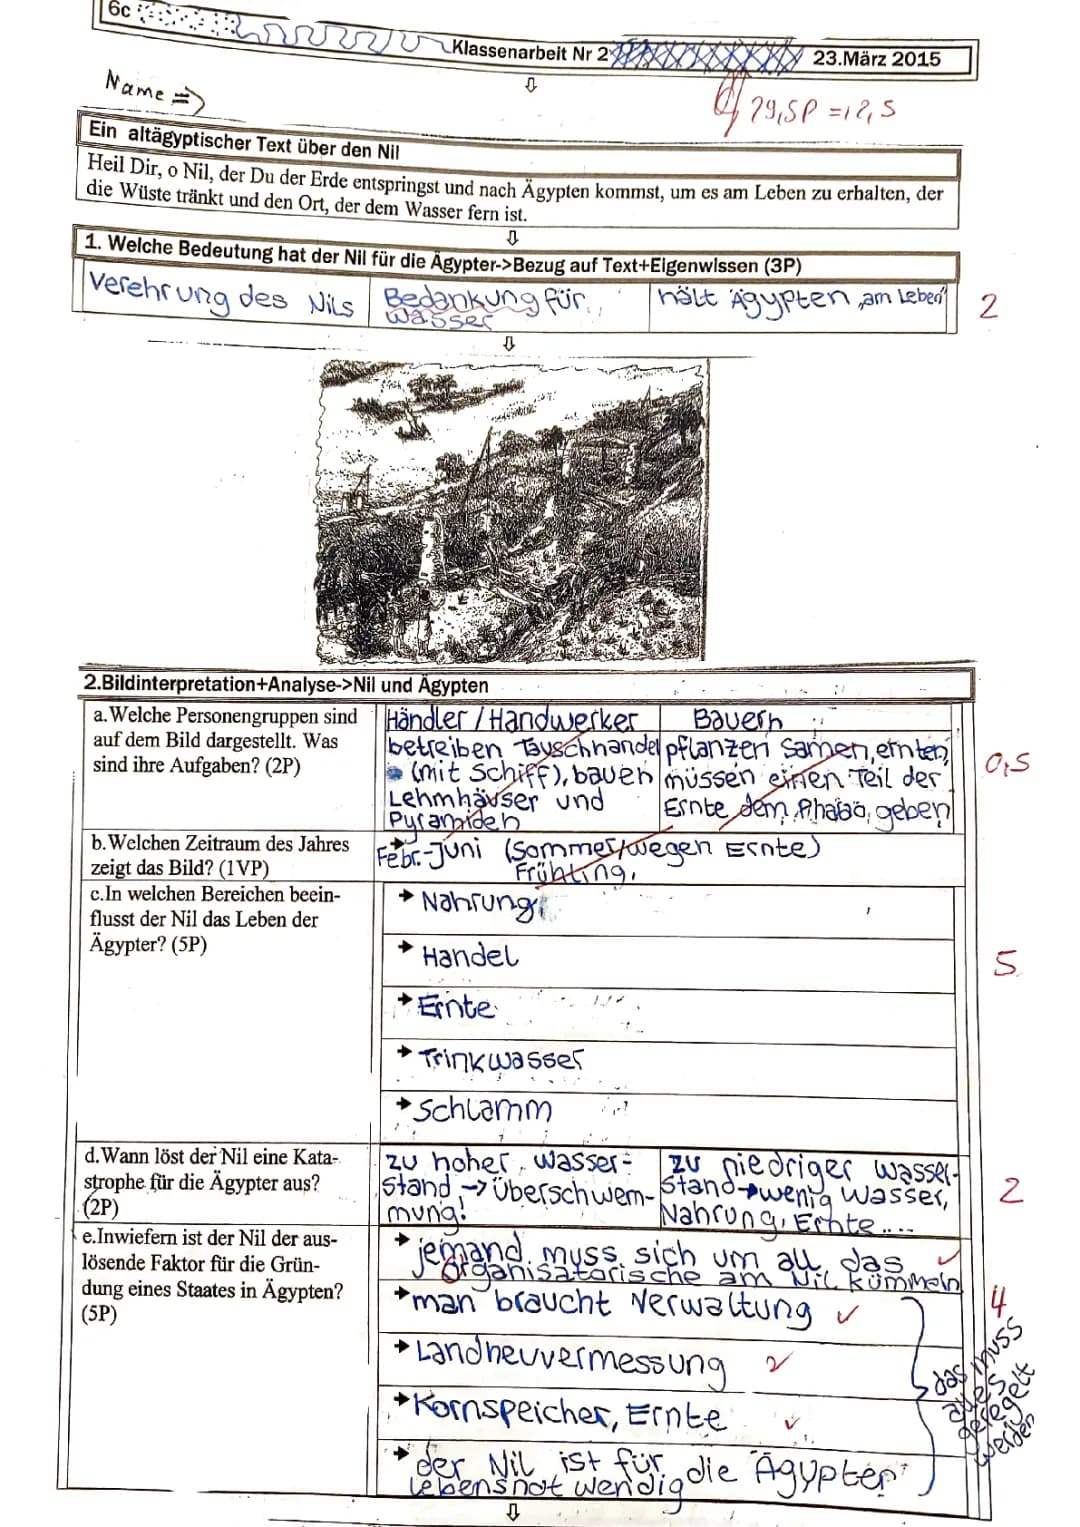 6c
Klassenarbeit Nr 2
23.März 2015
Name =>
29,5P =12,5
Ein altägyptischer Text über den Nil
Heil Dir, o Nil, der Du der Erde entspringst und nach Ägypten kommst, um es am Leben zu erhalten, der
die Wüste tränkt und den Ort, der dem Wasser fern ist.
1. Welche Bedeutung hat der Nil für die Ägypter->Bezug auf Text+Eigenwissen (3P)
Verehrung des Nils
Bedankung für
Wasser
hält Ägypten „am Leben"
2
2.Bildinterpretation+Analyse->Nil und Ägypten
a.Welche Personengruppen sind
auf dem Bild dargestellt. Was
sind ihre Aufgaben? (2P)
Händler/Handwerker
betreiben Tauschhandel
(mit Schiff), bauen
Lehmhäuser und
Pyramiden
Bauern
pflanzen Samen, ernten,
müssen einen Teil der
Ernte dem Phabao, geben
0,5
b.Welchen Zeitraum des Jahres
zeigt das Bild? (1VP)
Febr.-Juni (Sommer/wegen Ernte)
Frühling.
c.In welchen Bereichen beein-
flusst der Nil das Leben der
Ägypter? (5P)
→ Nahrung
→ Handel
→ Ernte
→ Trinkwasser
→ Schlamm
5
d.Wann löst der Nil eine Kata-
strophe für die Ägypter aus?
(2P)
zu hoher Wasser-
stand → Überschwem-
mung!
zu niedriger Wasser-
stand → wenig Wasser,
Nahrung, Ernte....
2
e.Inwiefern ist der Nil der aus-
lösende Faktor für die Grün-
dung eines Staates in Ägypten?
(5P)
→ jemand muss sich um all das
organisatorische am Nil kümmeln
→ man braucht Verwaltung
→ Landneuvermessung
→ Kornspeicher, Ernte
→ der Nil ist für die Ägypter
lebensnotwendig
4
das muss
alles
geregelt
werden